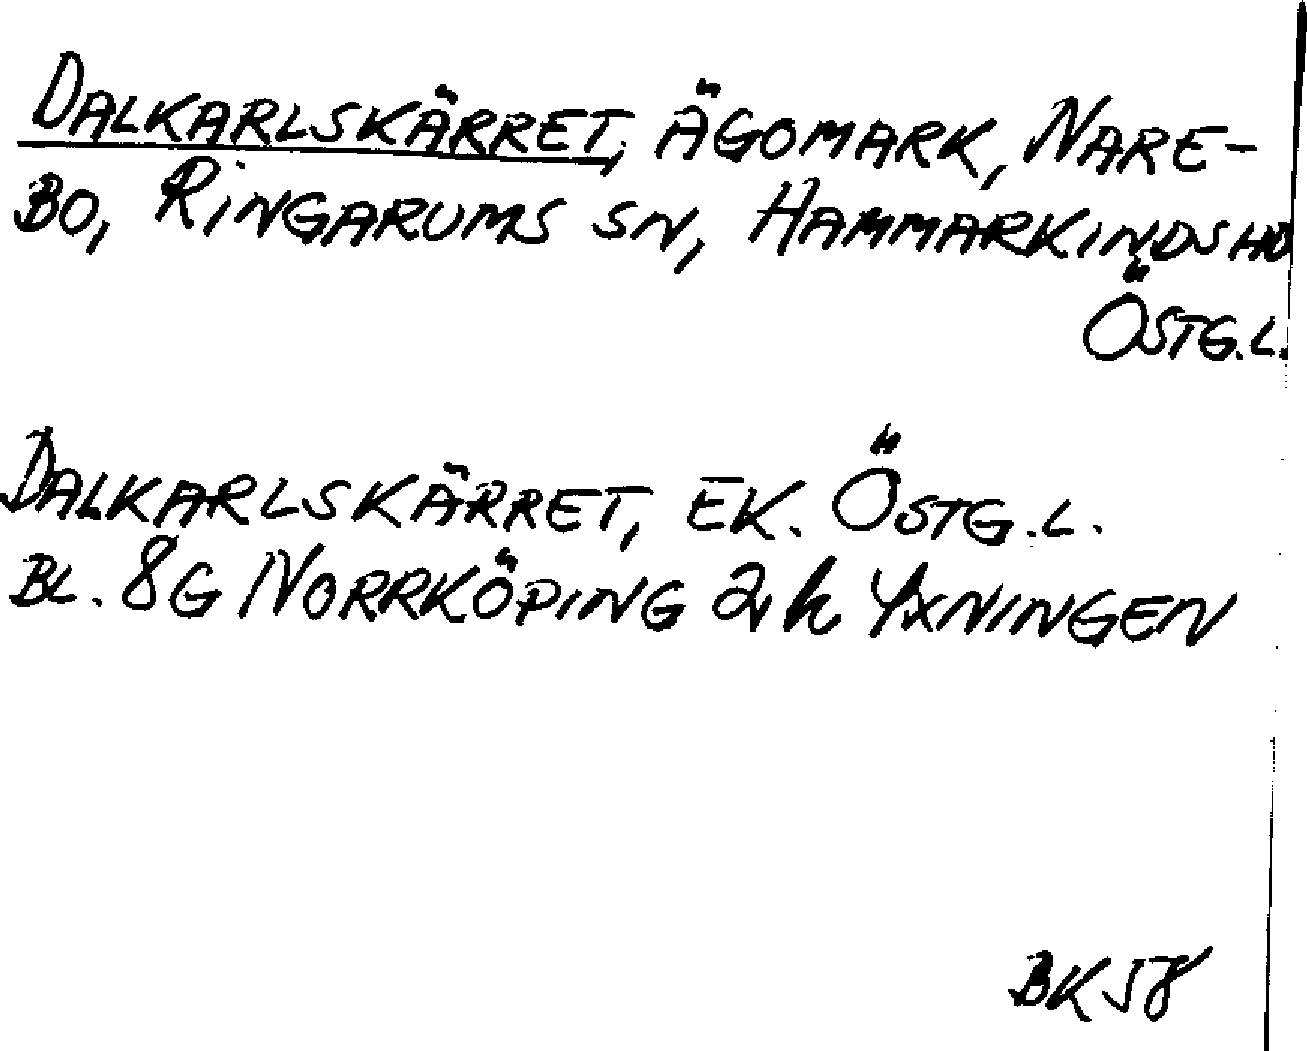 DALKARLSKÄRRET, ÄGOMARK, NARE-
BO, RINGARUMS SN, HAMMARKINDS HD
ÖSTG.L.
DALKARLSKÄRRET, EK. ÖSTG.L.
BL. 8G NORRKÖPING 2h YXNINGEN
BK 58